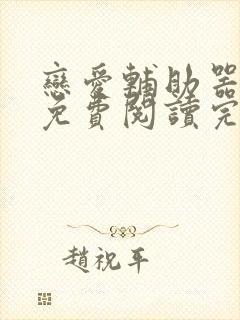 戀愛輔助器
免費閱讀完
趙祝平